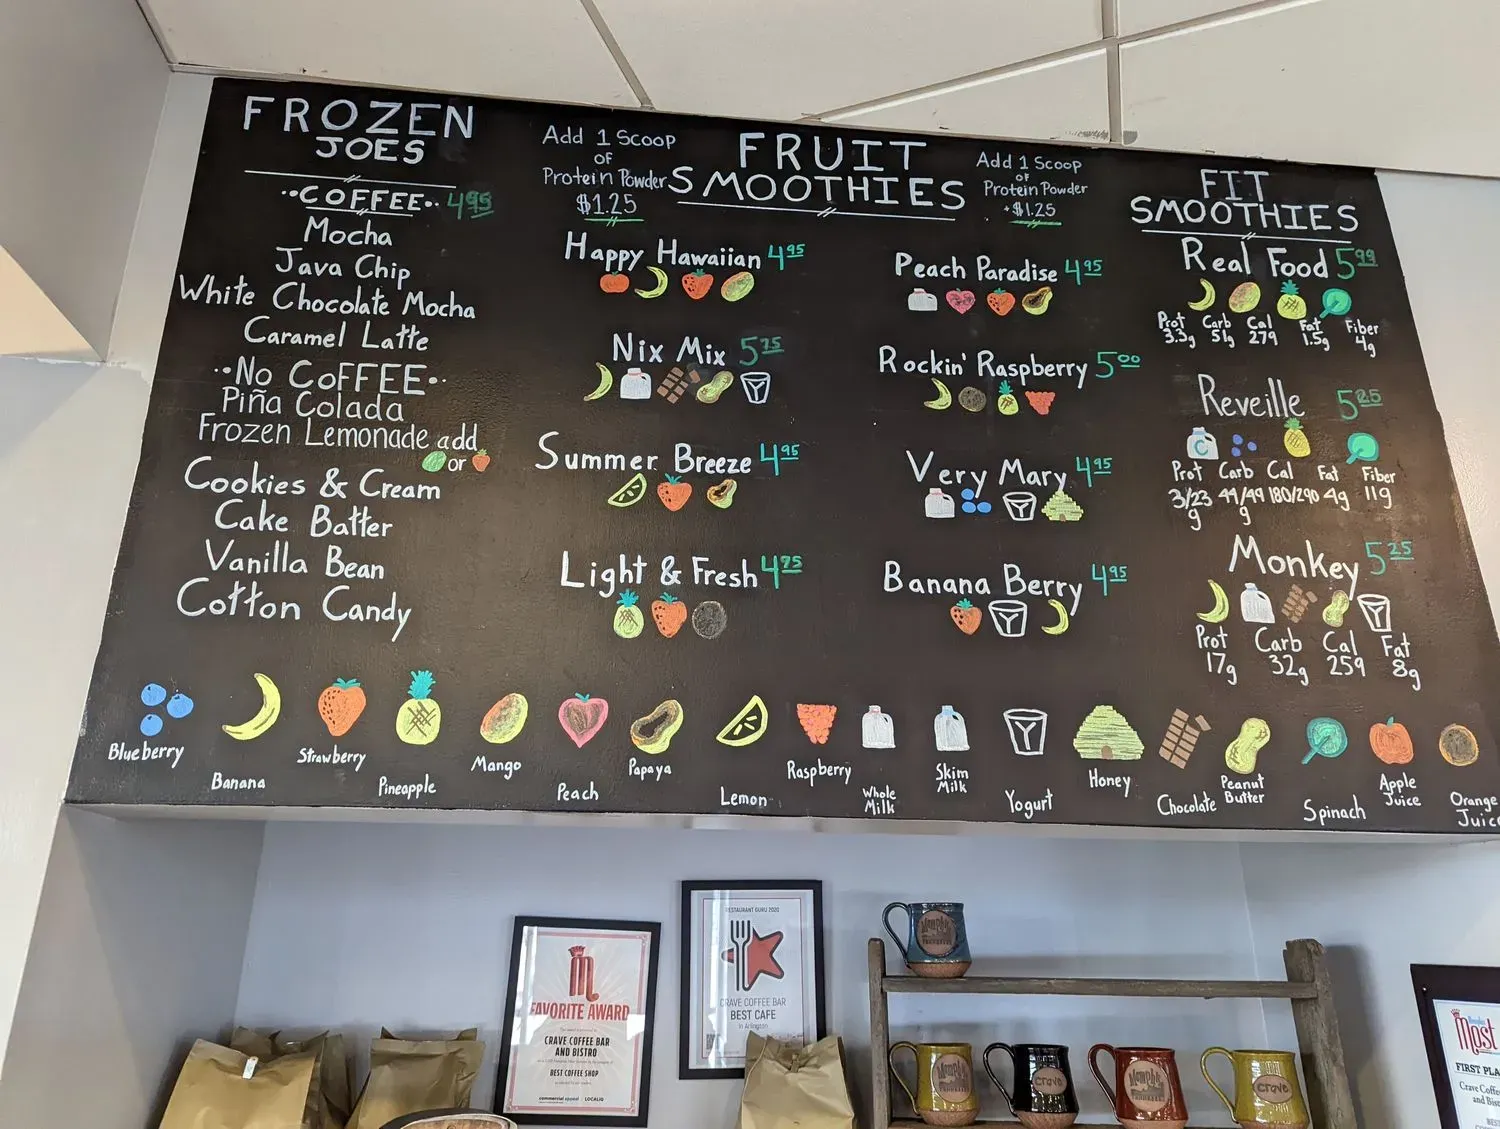 FROZEN
JOES
COFFEE 4.95
Mocha
Java Chip
White Chocolate Mocha
Caramel Latte
No COFFEE
Piña Colada
Frozen Lemonade add
or
Cookies & Cream
Cake Batter
Vanilla Bean
Cotton Candy
Add 1 Scoop
OF
Protein Powder
$1.25
FRUIT
SMOOTHIES
Add 1 Scoop
OF
Protein Powder
+$1.25
Happy Hawaiian 4.95
Nix Mix 5.75
Summer Breeze 4.95
Light & Fresh 4.75
Peach Paradise 4.95
Rockin' Raspberry 5.00
Very Mary 4.95
Banana Berry 4.95
FIT
SMOOTHIES
Real Food 5.99
Prot Carb Cal Fat Fiber
3.3g 51g 279 1.5g 4g
Reveille 5.25
C
Prot Carb Cal Fat Fiber
3/23 g 44/49 g 180/290 4g 11g
Monkey 5.25
Prot Carb Cal Fat
17g 32g 259 8g
Blueberry
Banana
Strawberry
Pineapple
Mango
Peach
Papaya
Lemon
Raspberry
Whole
Milk
Skim
Milk
Yogurt
Honey
Chocolate
Peanut
Butter
Spinach
Apple
Juice
Orange
Juice
M
FAVORITE AWARD
CRAVE COFFEE BAR
AND BISTRO
BEST COFFEE SHOP
commercial appeal LOCALiQ
RESTAURANT GURU 2020
CRAVE COFFEE BAR
BEST CAFE
in Arlington
Memphis
Memphis
crave
Memphis
crave
Most
FIRST PLA
Crave Coffe
and Bist